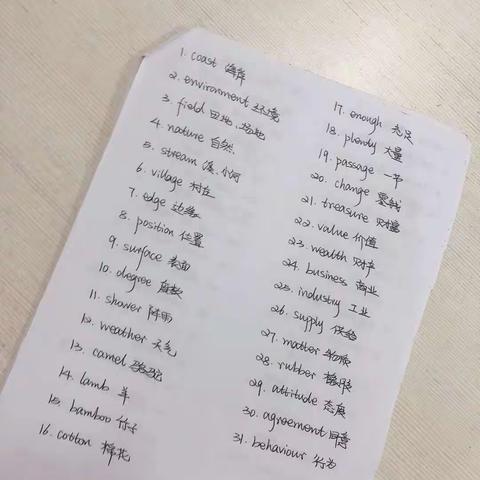 1. coast 海岸
2. environment 环境
3. field 田地、场地
4. nature 自然.
5. stream 溪、小河
6. village 村庄
7. edge 边缘
8. position 位置
9. surface 表面
10. degree 度数
11. shower 阵雨
12. weather 天气
13. camel 骆驼
14. lamb 羊
15. bamboo 竹子
16. cotton 棉花
17. enough 充足
18. plenty 大量
19. passage 一节
20. change 零钱
21. treasure 财富
22. value 价值
23. wealth 财产
24. business 商业
25. industry 工业
26. supply 供给
27. matter 物质
28. rubber 橡胶
29. attitude 态度
30. agreement 同意
31. behaviour 行为